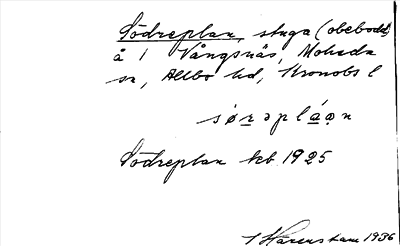 Södreplan, stuga (obebodd)
å 1 Vångsnäs, Moheda
sn, Allbo hd, Kronobs l
sørəpláꞷn
Södreplan kb 1925
Harenstam 1936